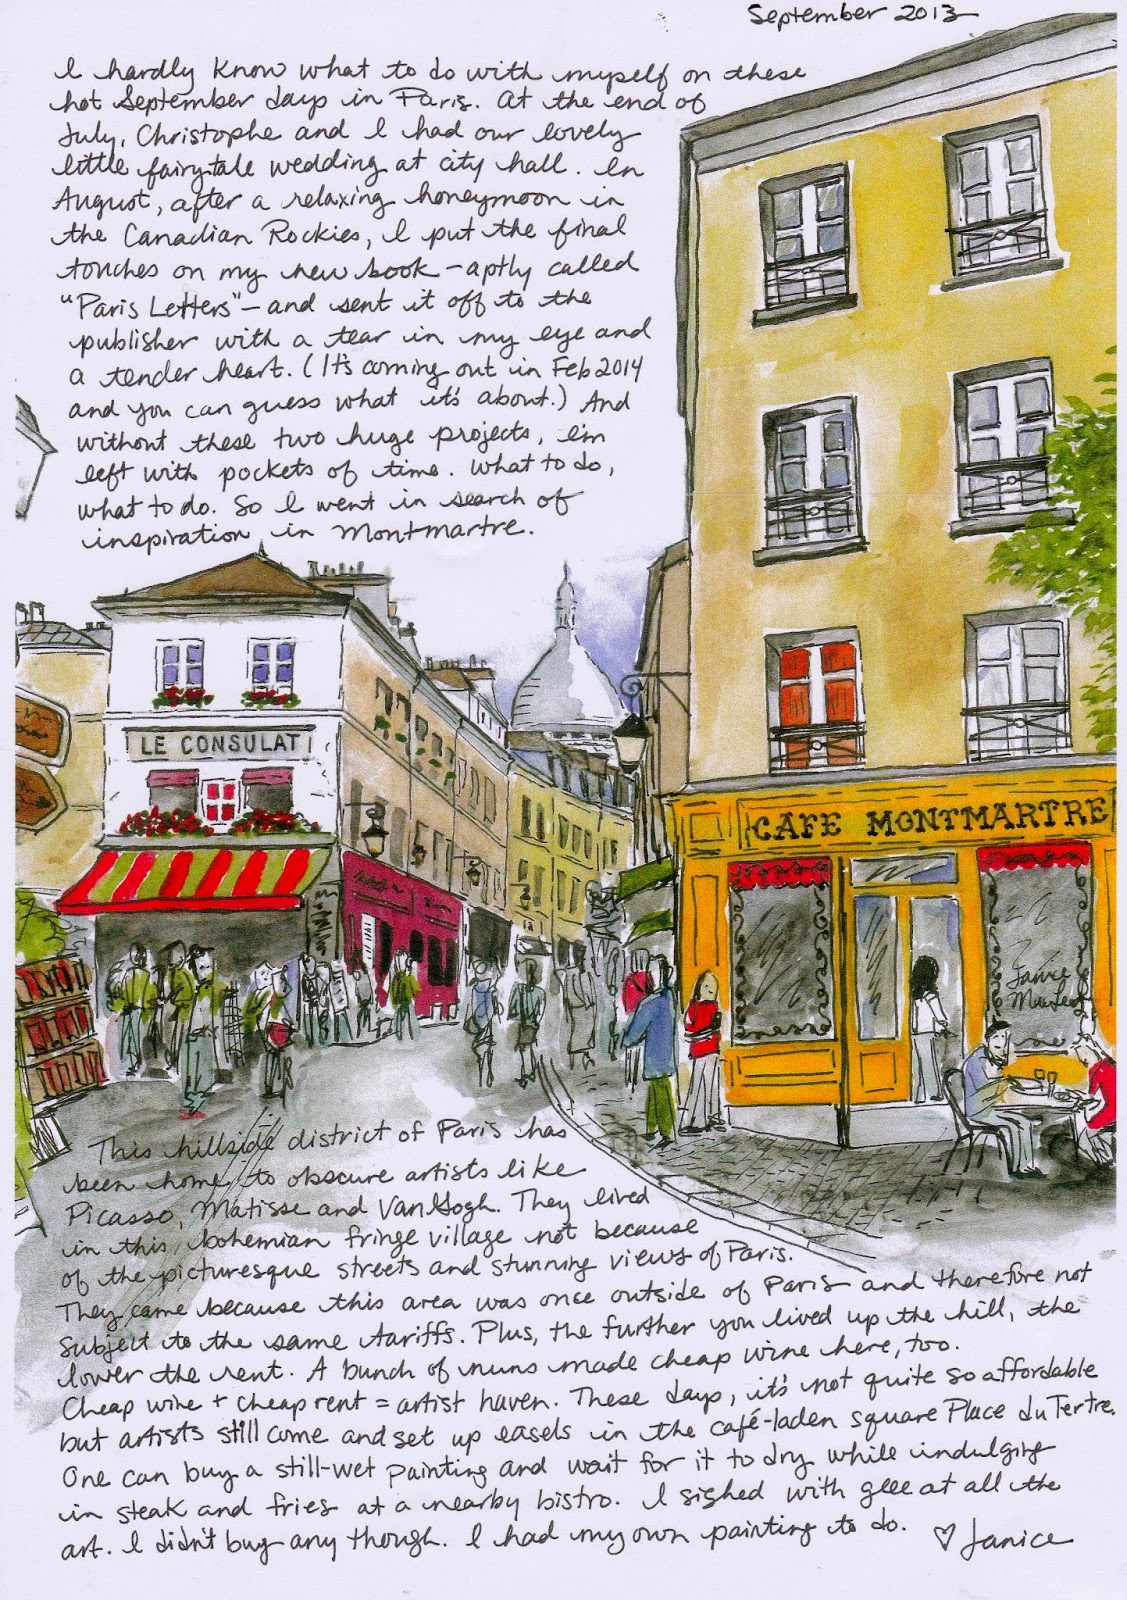 September 2013
I hardly know what to do with myself on these
hot September days in Paris. At the end of
July, Christophe and I had our lovely
little fairytale wedding at city hall. In
August, after a relaxing honeymoon in
the Canadian Rockies, I put the final
touches on my new book - aptly called
"Paris Letters" - and sent it off to the
publisher with a tear in my eye and
a tender heart. (It's coming out in Feb 2014
and you can guess what it's about.) And
without these two huge projects, I'm
left with pockets of time. What to do,
what to do. So I went in search of
inspiration in Montmartre.
LE CONSULAT
CAFE MONTMARTRE
Janice
This hillside district of Paris has
been home to obscure artists like
Picasso, Matisse and Van Gogh. They lived
in this bohemian fringe village not because
of the picturesque streets and stunning views of Paris.
They came because this area was once outside of Paris and therefore not
subject to the same tariffs. Plus, the further you lived up the hill, the
lower the rent. A bunch of nuns made cheap wine here, too.
Cheap wine + cheap rent = artist haven. These days, it's not quite so affordable
but artists still come and set up easels in the café-laden square Place du Tertre.
One can buy a still-wet painting and wait for it to dry while indulging
in steak and fries at a nearby bistro. I sighed with glee at all the
art. I didn't buy any though. I had my own painting to do.
♡ Janice